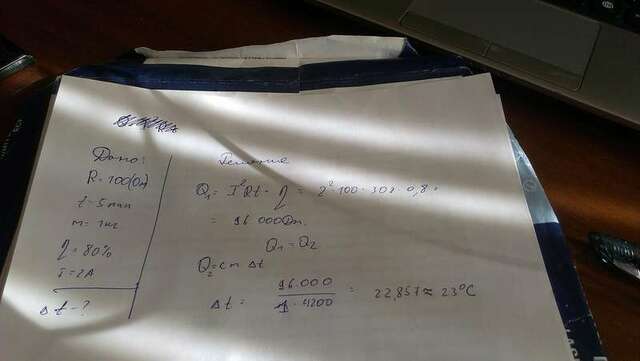 Дано:
R = 100(Ом)
t = 5 мин
m = 1кг
η = 80%
I = 2A
Δt - ?
Решение
Q₁ = I²Rt · η = 2² · 100 · 300 · 0,8 =
= 96 000Дж.
Q₁ = Q₂
Q₂ = cm Δt
Δt = 96.000 / 1 · 4200 = 22,857 ≈ 23°C